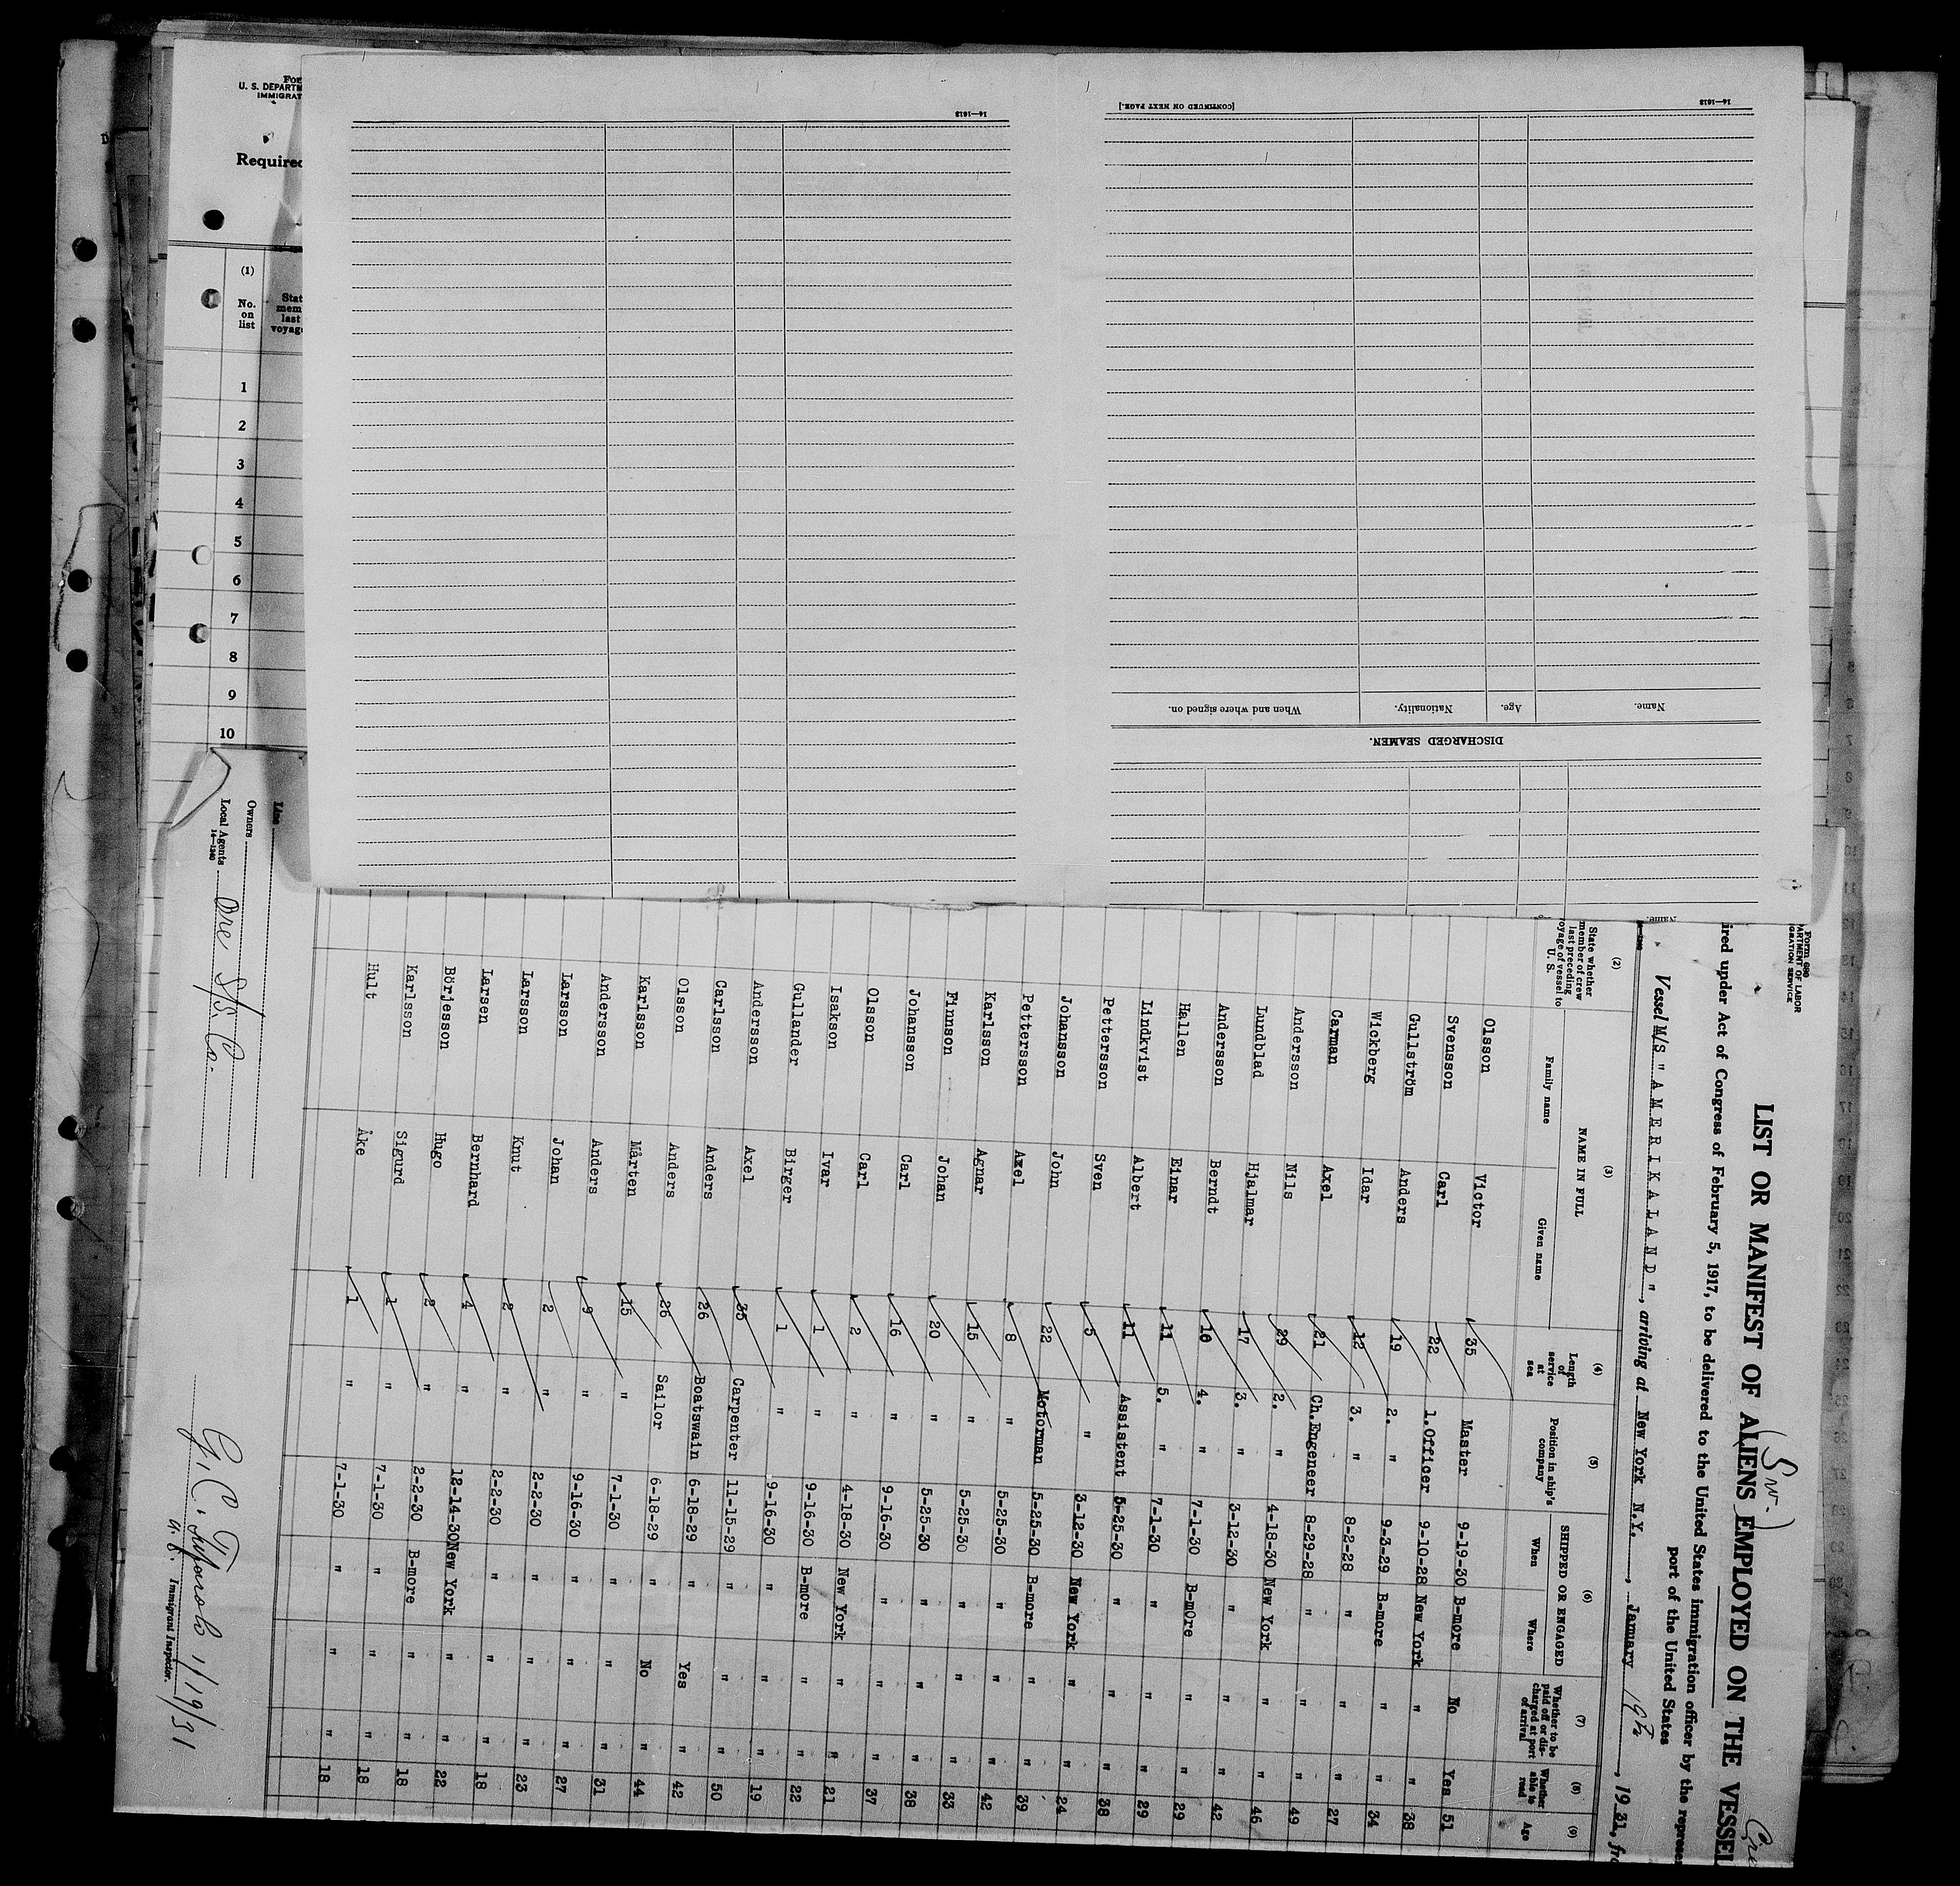 U. S. DEPARTM
IMMIGRAT
Required
(1)
No. on list
1
2
3
4
5
6
7
8
9
10
14—1613
[CONTINUED ON NEXT PAGE.]
14—1613
DISCHARGED SEAMEN.
Name. Age. Nationality. When and where signed on.
Form 680
ARTMENT OF LABOR
IGRATION SERVICE
LIST OR MANIFEST OF ALIENS EMPLOYED ON THE VESSEL
(Sw.)
ired under Act of Congress of February 5, 1917, to be delivered to the United States immigration officer by the represen
port of the United States
Vessel M/S " A M E R I K A L A N D ", arriving at New York N.Y., January 19th, 1931, fro
(2) (3) (4) (5) (6) (7) (8) (9)
State whether member of crew last preceding voyage of vessel to U. S.
NAME IN FULL
Family name Given name
Length of service at sea
Position in ship's company
SHIPPED OR ENGAGED
When Where
Whether to be paid off or discharged at port of arrival
Whether able to read
Age
Olsson Victor 35 Master 9-19-30 B-more No Yes 51
Svensson Carl 22 1.Officer 9-10-28 New York " " 38
Gullström Anders 19 2. " 9-3-29 B-more " " 34
Wickberg Idar 12 3. " 8-2-28 " " " 27
Carman Axel 21 Ch.Engeneer 8-29-28 " " " 49
Andersson Nils 29 2. " 4-18-30 New York " " 46
Lundblad Hjalmar 17 3. " 3-12-30 " " " 42
Andersson Berndt 10 4. " 7-1-30 B-more " " 29
Hallen Einar 11 5. " 7-1-30 " " " 29
Lindkvist Albert 11 Assistent 5-25-30 " " " 38
Pettersson Sven 5 " 3-12-30 New York " " 24
Johansson John 22 Motorman 5-25-30 B-more " " 39
Pettersson Axel 8 " 5-25-30 " " " 42
Karlsson Agnar 15 " 5-25-30 " " " 33
Finnson Johan 20 " 5-25-30 " " " 38
Johansson Carl 16 " 9-16-30 " " " 37
Olsson Carl 2 " 4-18-30 New York " " 21
Isakson Ivar 1 " 9-16-30 B-more " " 22
Gullander Birger 1 " 9-16-30 " " " 19
Andersson Axel 35 Carpenter 11-15-29 " " " 50
Carlsson Anders 26 Boatswain 6-18-29 " Yes " 42
Olsson Anders 26 Sailor 6-18-29 " No " 44
Karlsson Mårten 15 " 7-1-30 " " " 31
Andersson Anders 9 " 9-16-30 " " " 27
Larsson Johan 2 " 2-2-30 " " " 23
Larsson Knut 2 " 2-2-30 " " " 18
Larsen Bernhard 4 " 12-14-30 New York " " 22
Börjesson Hugo 2 " 2-2-30 B-more " " 18
Karlsson Sigurd 1 " 7-1-30 " " " 18
Hult Åke 1 " 7-1-30 " " " 18
Line
Owners
Local Agents Ore S/S. Co.
14—1240
1/19/31
Immigrant Inspector.